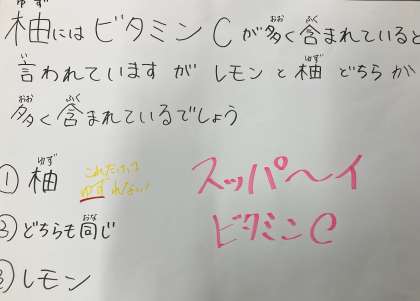 柚にはビタミンCが多く含まれていると
言われていますがレモンと柚どちらが
多く含まれているでしょう
① 柚
これだけはゆずれない!
③ どちらも同じ
② レモン
スッパ〜イ
ビタミンC